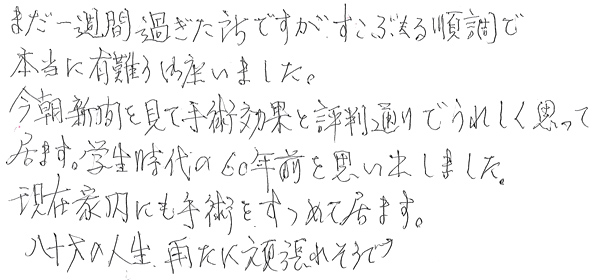 まだ一週間過ぎた所ですが、すこぶる順調で
本当に有難う御座いました。
今朝新聞を見て手術効果と評判通りでうれしく思って
居ます。学生時代の60年前を思い出しました。
現在家内にも手術をすゝめて居ます。
八十才の人生、再たに頑張れそうです